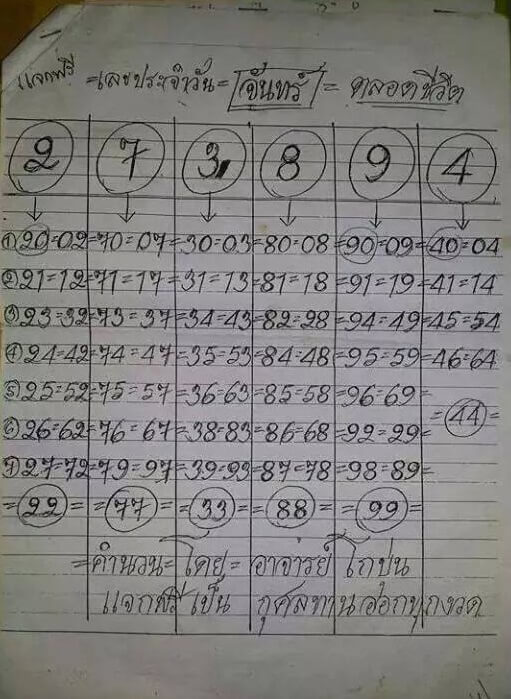 แจกฟรี =เลขประจำวัน= จันทร์ = ตลอดชีวิต
2 7 3 8 9 4
↓ ↓ ↓ ↓ ↓ ↓
① 20=02=70=07=30=03=80=08=90=09=40=04
② 21=12=71=17=31=13=81=18=91=19=41=14
③ 23=32=73=37=34=43=82=28=94=49=45=54
④ 24=42=74=47=35=53=84=48=95=59=46=64
⑤ 25=52=75=57=36=63=85=58=96=69=
=44=
⑥ 26=62=76=67=38=83=86=68=92=29=
⑦ 27=72=79=97=39=93=87=78=98=89=
=22= =77= =33= =88= =99=
=คำนวน= โดย= อาจารย์ โกปุ่น
แจกฟรี เป็น กุศลทาน ออกทุกงวด